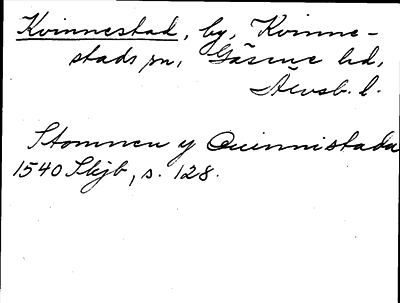 Kvinnestad, by, Kvinne-
stads sn, Gäsene hd,
Älvsb. l.
Stommen y Quinnistada
1540 Skjb, s. 128.